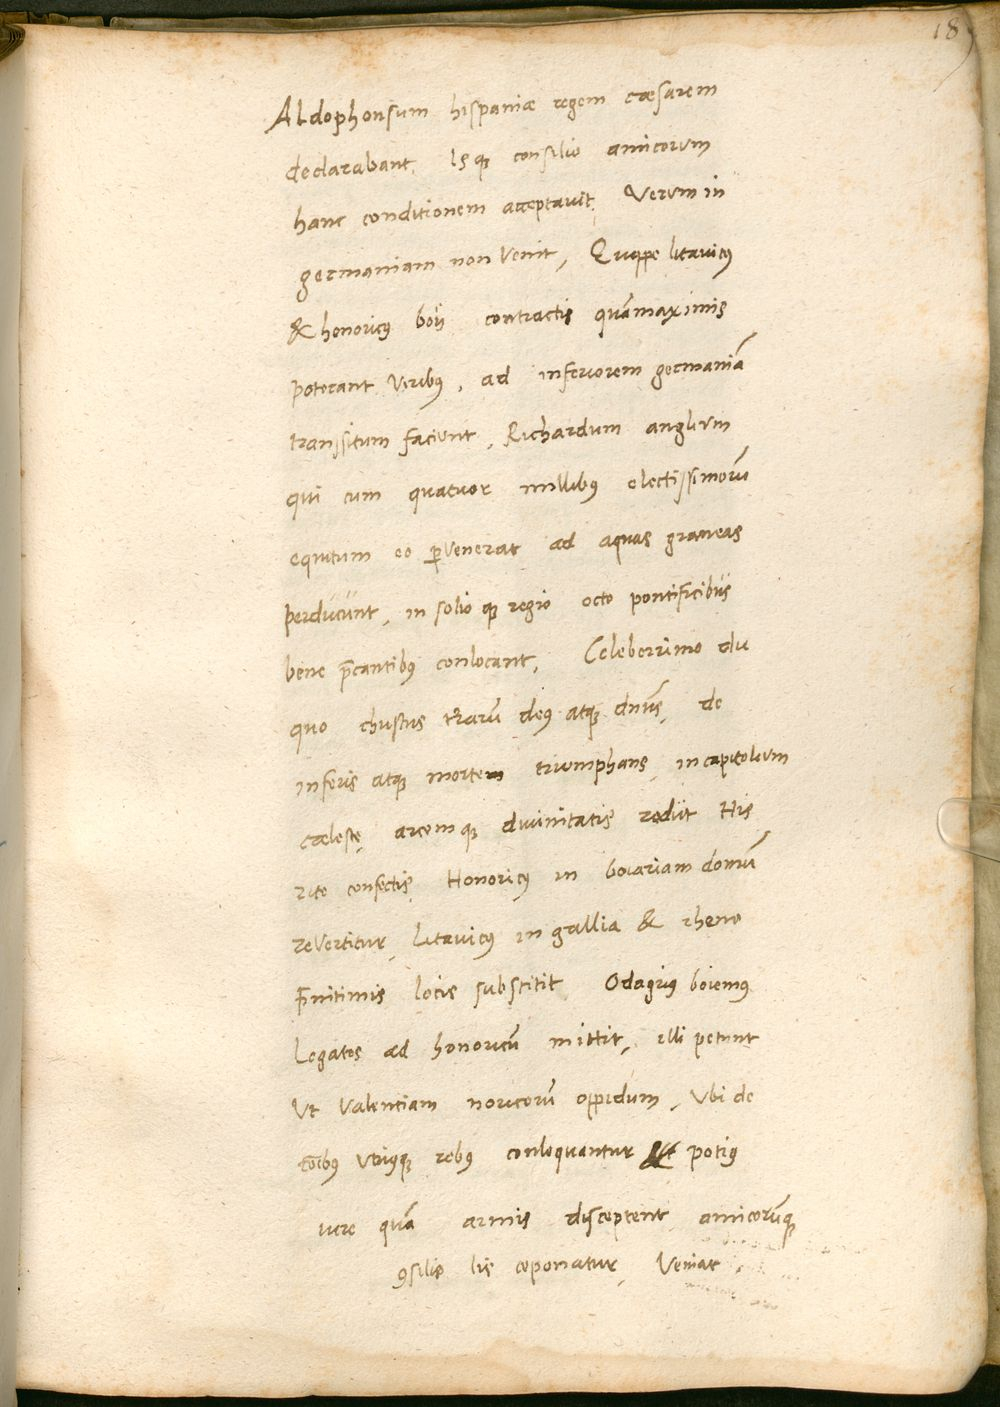 187
Aldophonsum hispaniæ regem cæsarem
declarabant, Is qȝ consilio amicorum
hanc conditionem acceptauit, Verum in
germaniam non Venit, Quippe litauicꝰ
& henoricꝰ boii contractis quāmaximis
poterant Viribꝰ, ad inferiorem germaniā
transsitum faciunt, Richardum anglum
qui cum quatuor millibꝰ electissimorū
equitum eo ꝑVenerat ad aquas graneas
perducunt, in solio qȝ regio octo pontificibus
bene p̄cantibꝰ conlocant, Celeberrimo diu
quo christus t̄rarū deꝰ atqȝ dn̄s, de
inferis atqȝ mortem triumphans, in capitolium
cæleste, arcem qȝ diuinitatis rediit His
rite confectis, Honoricꝰ in boiariam domū
reVertitur, Litauicꝰ in gallia & rheno
finitimis locis substitit Odagriꝰ boiemꝰ
Legatos ad honoricū mittit, illi petunt
Ut Valentiam noricorū oppidum, Vbi de
cōibꝰ Vtriꝰqȝ rebꝰ conloquantur potiꝰ
iure quā armis disceptent, amicorūqȝ
ꝯsilio lis componatur, Veniat,